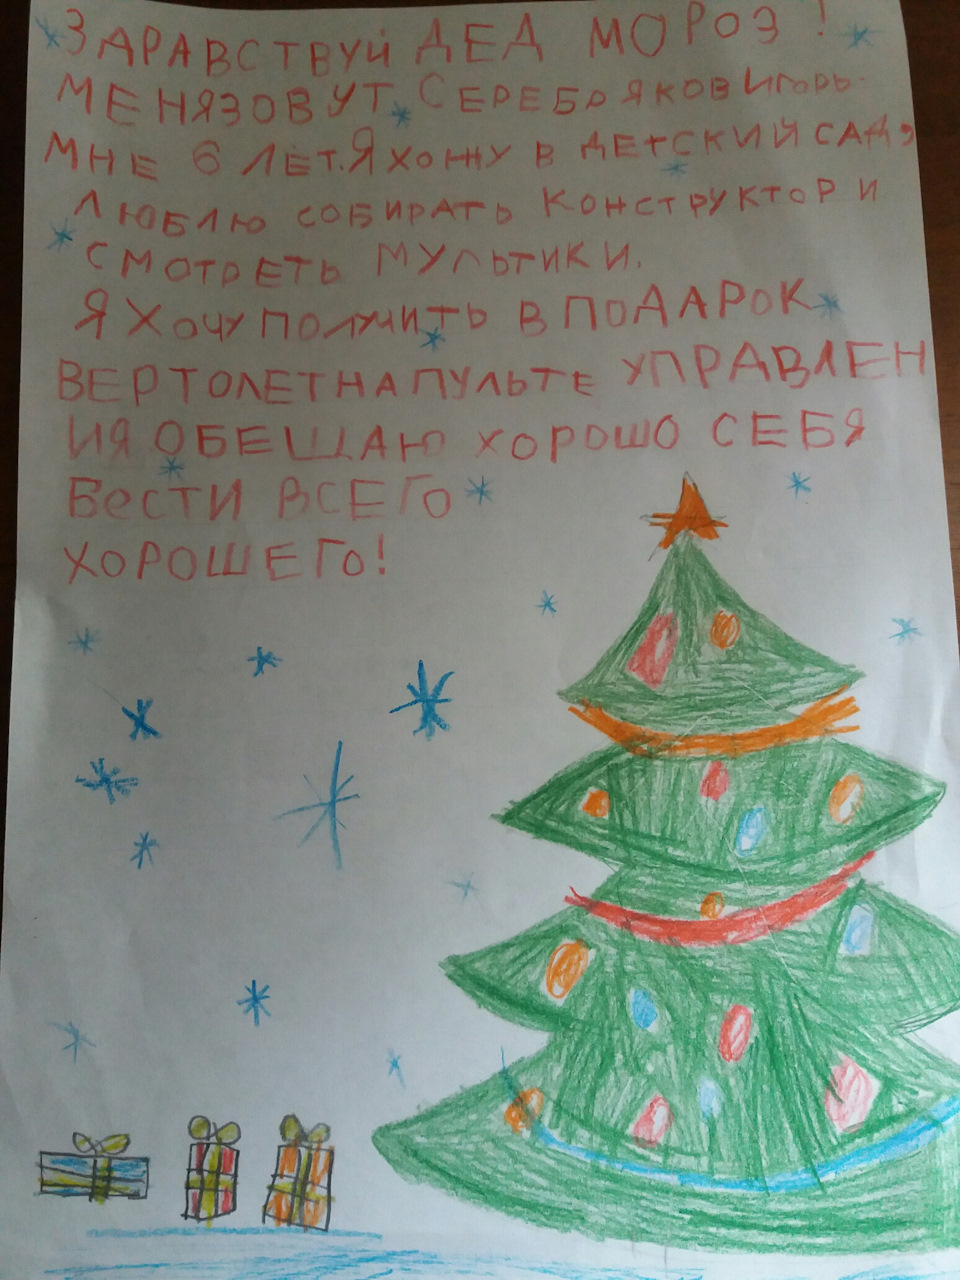 ЗДРАВСТВУЙ ДЕД МОРОЗ!
МЕНЯЗОВУТ СЕРЕБРЯКОВ ИГОРЬ.
МНЕ 6 ЛЕТ. Я ХОЖУ В ДЕТСКИЙ САД,
ЛЮБЛЮ СОБИРАТЬ КОНСТРУКТОР И
СМОТРЕТЬ МУЛЬТИКИ.
Я ХОЧУ ПОЛУЧИТЬ В ПОДАРОК
ВЕРТОЛЕТ НА ПУЛЬТЕ УПРАВЛЕН
ИЯ ОБЕЩАЮ ХОРОШО СЕБЯ
ВЕСТИ ВСЕГО
ХОРОШЕГО!